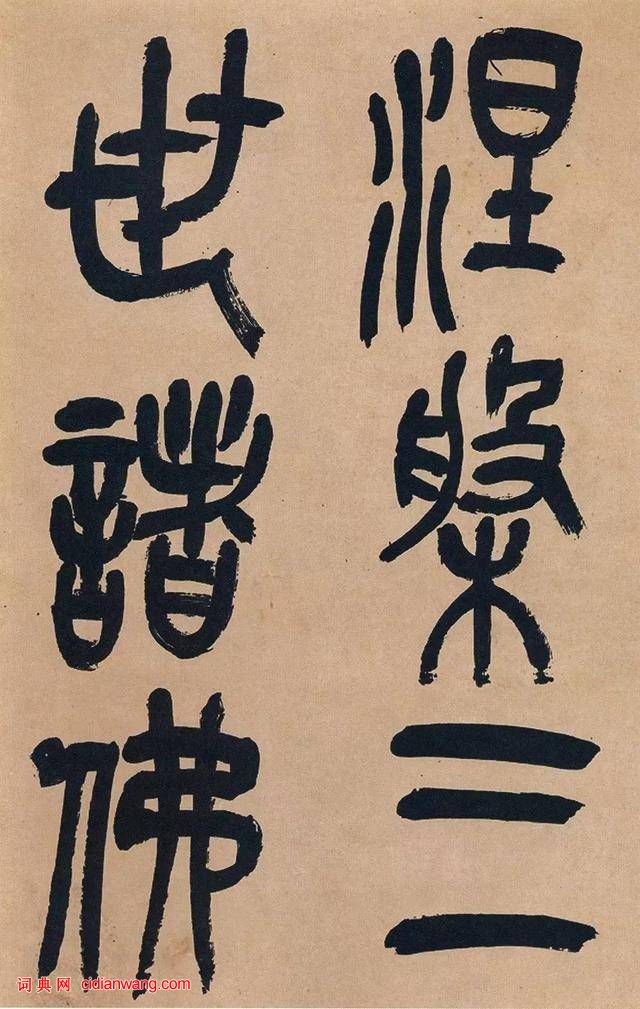 涅槃三
世諸佛
词典网 cidianwang.com